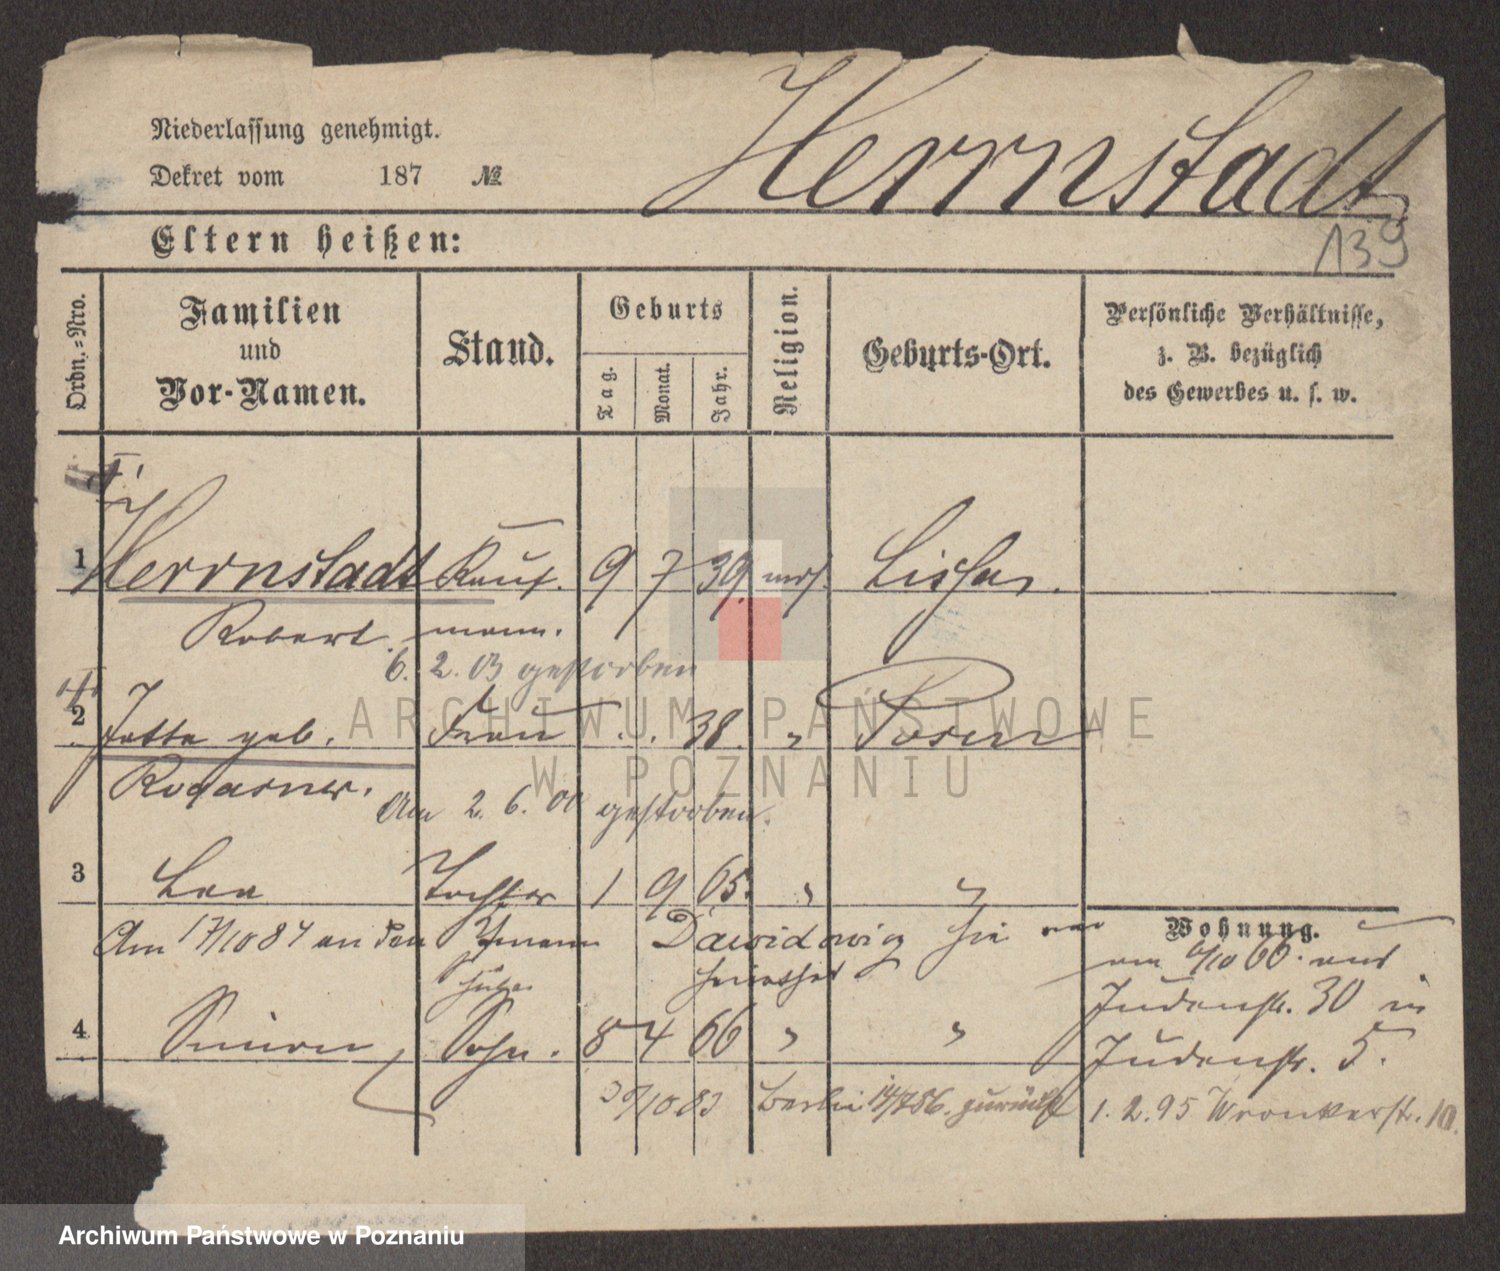 Niederlassung genehmigt.
Dekret vom 187 №
Herrnstadt
139
Eltern heißen:
Ordn.-Nro.
Familien und Vor-Namen.
Stand.
Geburts
Tag.
Monat.
Jahr.
Religion.
Geburts-Ort.
Persönliche Verhältnisse,
z. B. bezüglich
des Gewerbes u. s. w.
1 Herrnstadt Kauf- 9 7 39. mos. Lissa.
Robert. mann.
6. 2. 03 gestorben
2 Jette geb. Frau . . 38. " Posen
Am 2. 6. 00 gestorben.
3 Lea Tochter 1 9 65. " "
Wohnung.
Am 17/10 84 an den Dawidowicz
am 6/10 66. aus
verheirathet
Judenstr. 30 in
4 Simon Sohn. 8 4 66 " "
Judenstr. 5.
10 83 Berlin 14/7 86. zurück
1. 2. 95 Wronkerstr. 10.
ARCHIWUM PAŃSTWOWE
W POZNANIU
Archiwum Państwowe w Poznaniu